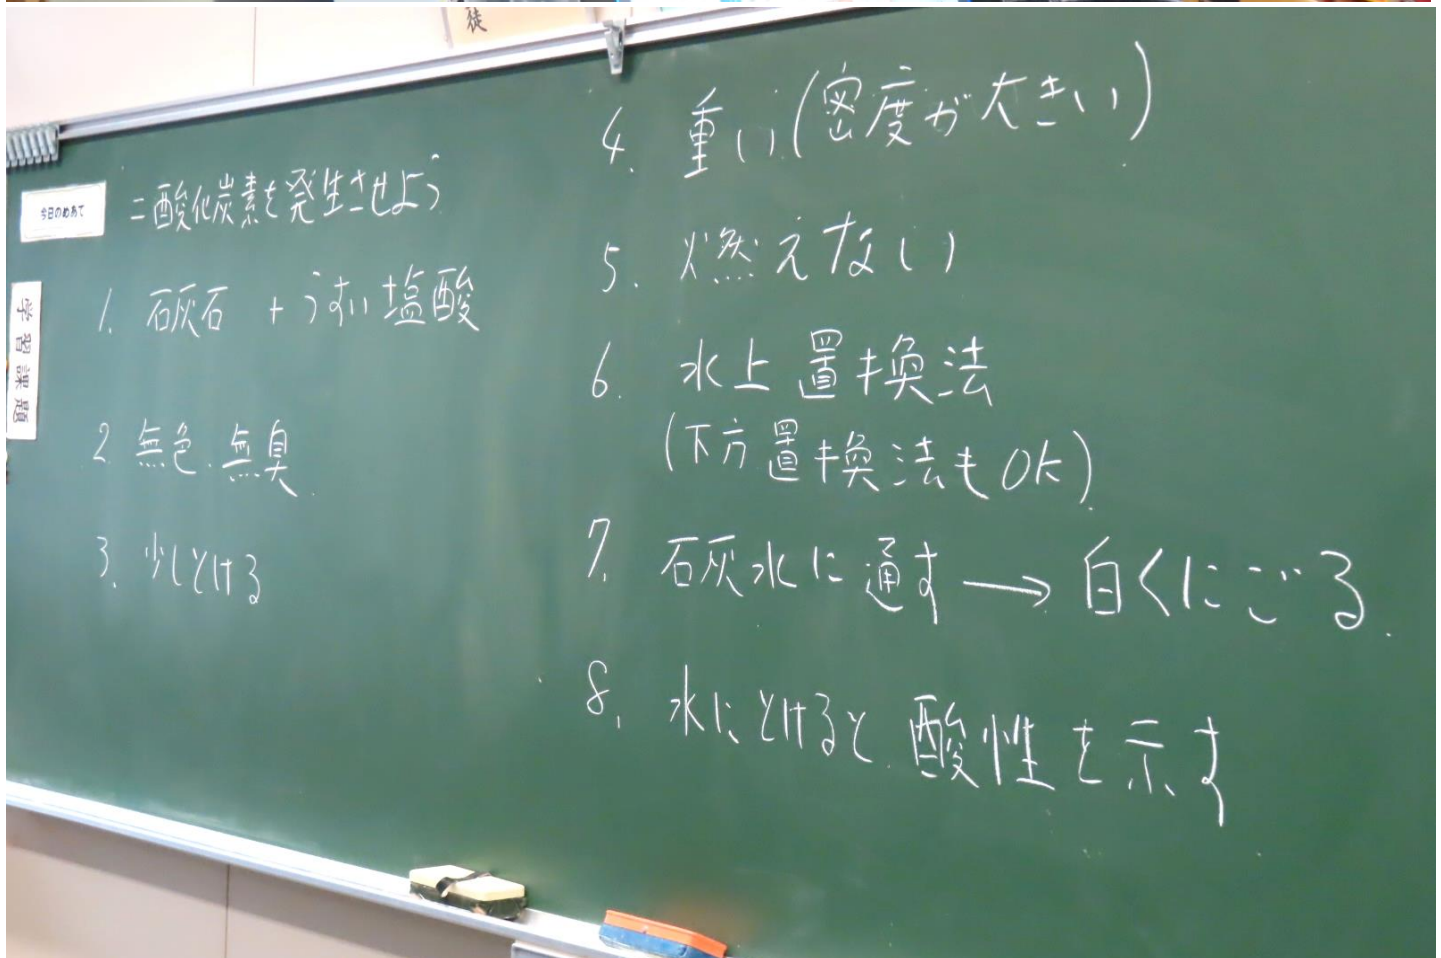 徒
今日のめあて
二酸化炭素を発生させよう
学習課題
1. 石灰石 + うすい塩酸
2. 無色.無臭.
3. 少しとける
4. 重い(密度が大きい)
5. 燃えない
6. 水上置換法
(下方置換法もOK)
7. 石灰水に通す → 白くにごる.
8. 水にとけると酸性を示す